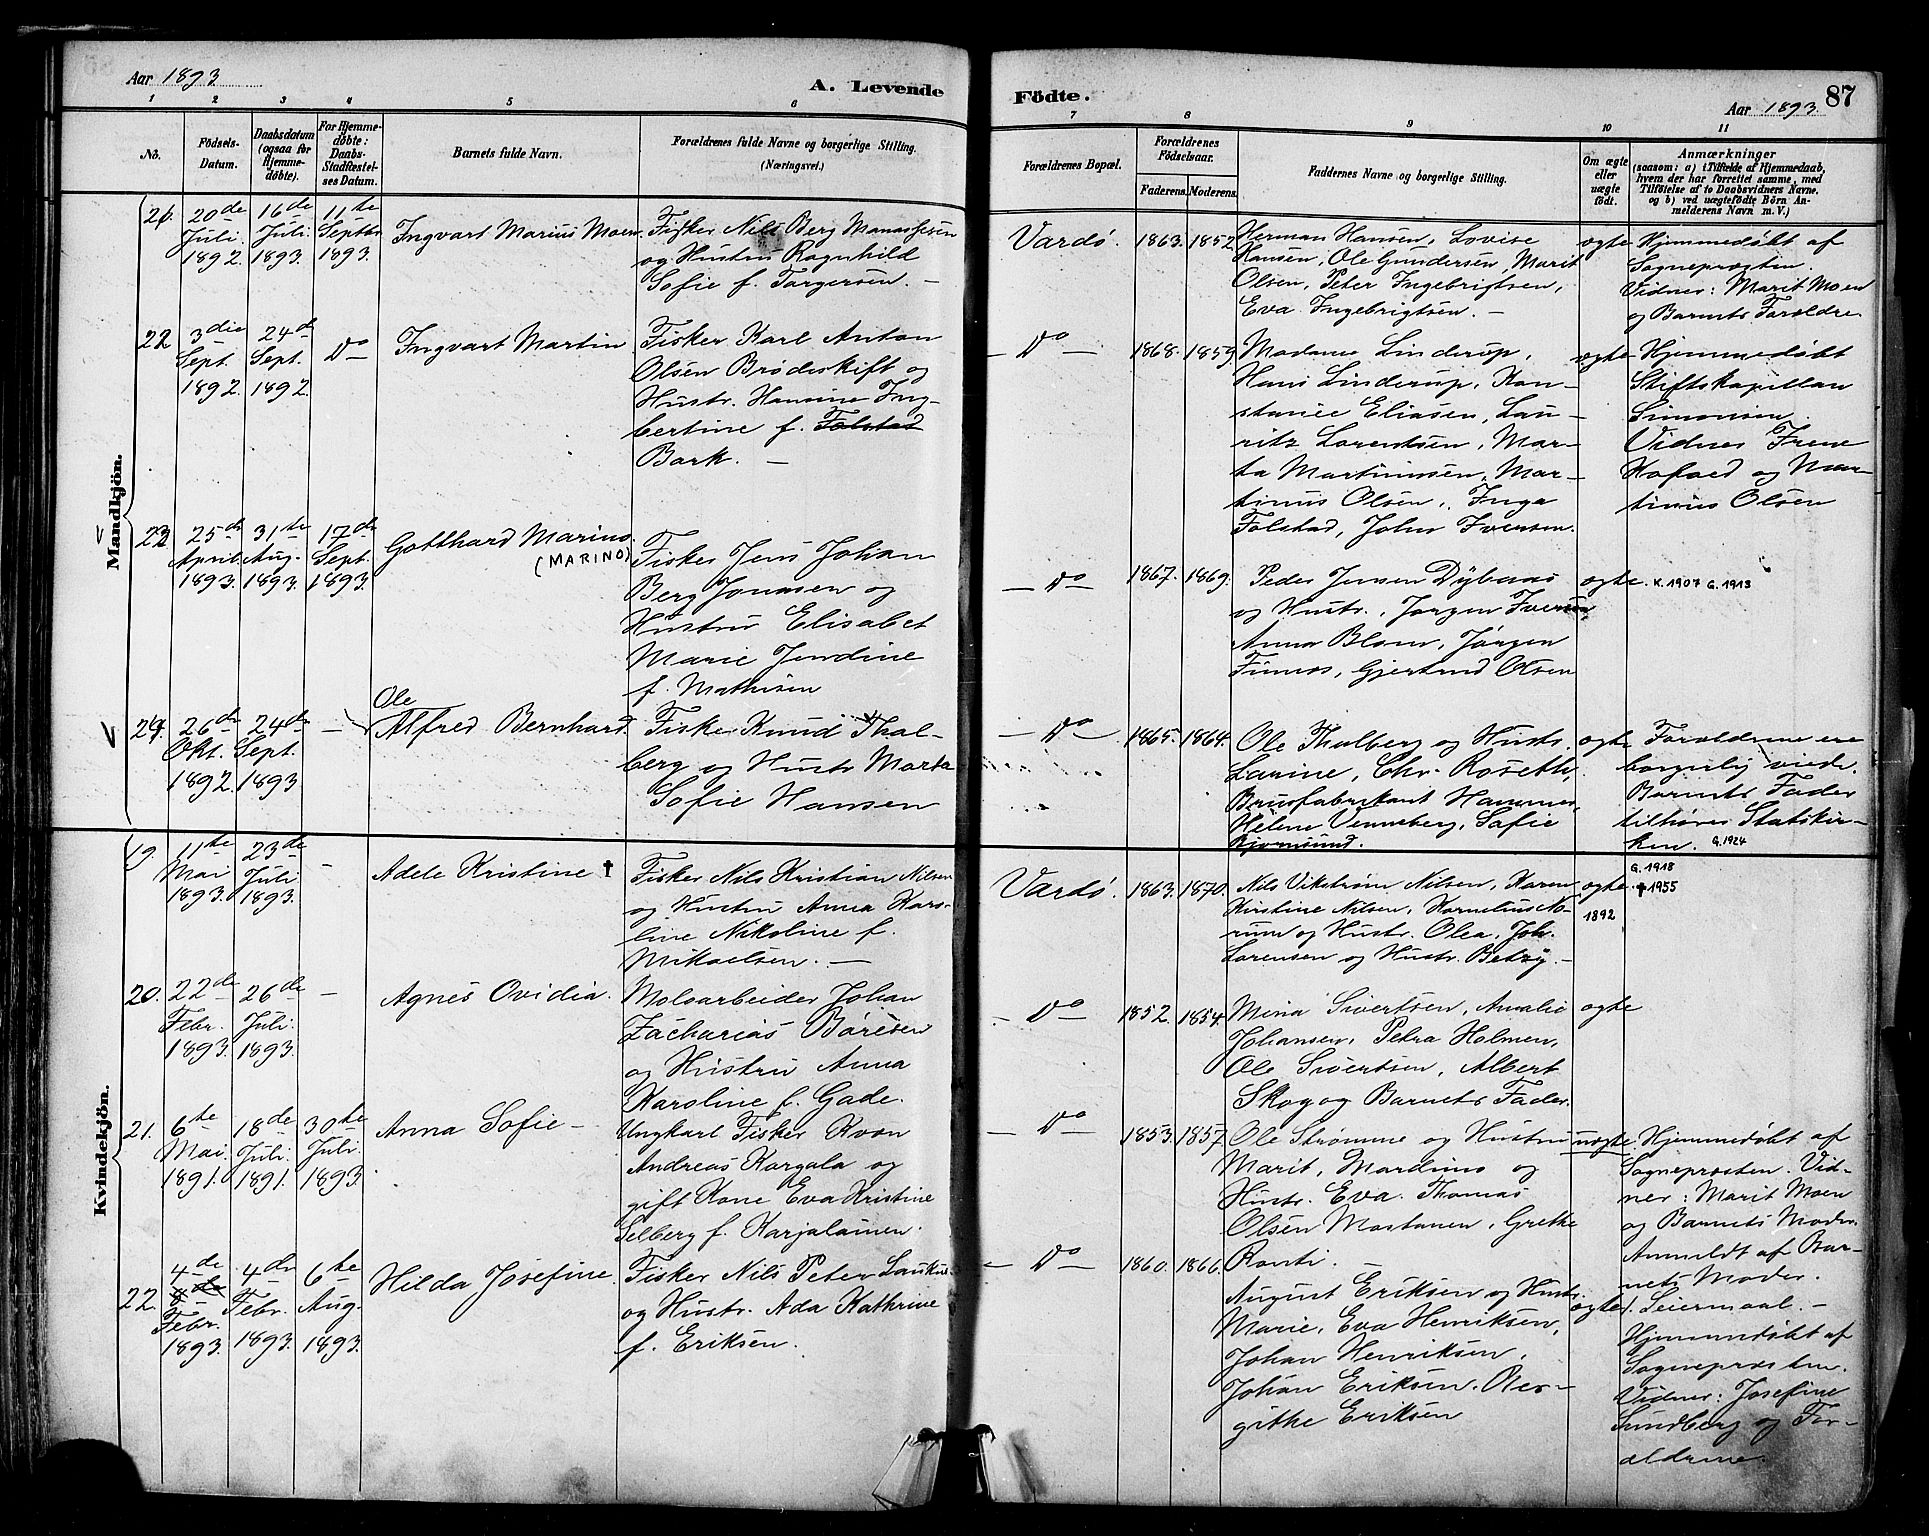 Aar 1893
A. Levende
1 2 3 4 5 6
No.
Födsels-Datum.
Daabsdatum (ogsaa for Hjemme-döbte).
For Hjemme-döbte: Daabs-Stadfæstel-ses Datum.
Barnets fulde Navn.
Forældrenes fulde Navne og borgerlige Stilling.
(Næringsvei.)
Födte.
Aar 1893.
87
7 8 9 10 11
Forældrenes Bopæl.
Forældrenes Födselsaar.
Faderens. Moderens.
Faddernes Navne og borgerlige Stilling.
Om ægte eller uægte födt.
Anmærkninger
(saasom: a) i Tilfælde af Hjemmedaab,
hvem der har forrettet samme, med
Tilföielse af to Daabsvidners Navne.
og b) ved uægtefödte Börn An-
melderens Navn m. V.)
Mandkjön.
21.
20de Juli 1892.
16de Juli 1893.
11te Septbr 1893.
Ingvart Marius Moen
Fisker Nils Berg Manassesen
og Hustru Ragnhild
Sofie f. Torgersen. —
Vardö. 1863. 1852.
Herman Hansen, Lovise
Hansen, Ole Gundersen, Marit
Olsen, Peter Ingebrigtsen,
Eva Ingebrigtsen. —
ægte
Hjemmedøbt af
Sognepræsten.
Vidner: Marit Moen
og Barnets Forældre
22
3die Sept. 1892.
24de Sept. 1892.
Do
Ingvart Martin
Fisker Karl Anton
Olsen Brødeskift og
Hustr. Hansine Ing-
bertine f. Folstad
Bark. —
— Do — 1868. 1859.
Madame Linderup,
Hans Linderup, Kon-
stance Eliasen, Lau-
ritz Lorentsen, Mar-
ta Martinussen, Mar-
tinus Olsen, Inga
Folstad, John Iversen.
ægte
Hjemmedøbt
Stiftskapellan
Simonsen.
Vidnes Irene
Hofoed og Mar-
tinus Olsen
23
25de April 1893.
31te Aug. 1893.
17de Sept. 1893.
Gotthard Marino.
(MARINO)
Fisker Jens Johan
Berg Jonassen og
Hustru Elisabet
Marie Jendine
f. Mathisen
— Do — 1867. 1869.
Peder Jensen Dybaas
og Hustr., Jørgen Iversen
Anna Blom, Jørgen
Finnes, Gjertrud Olsen
ægte.
K. 1907 G. 1913
24.
26de Okt. 1892.
24de Sept. 1893
—
Ole
Alfred Bernhard
Fisker Knud Thal-
berg og Hustr Marta
Sofie Hansen
— Do — 1865. 1864.
Ole Thalberg og Hustr.
Larine, Chr. Roseth,
Brusfabrikant Hammer,
Helene Venneberg, Sofie
Bjørnsund.
ægte
Forældrene ere
borgerlig viede.
Barnets Fader
tilhører Statskir-
ken. G. 1924
Kvindekjön.
19.
11te Mai 1893.
23de Juli 1893.
-
Adele Kristine †
Fisker Nils Kristian Nilsen
og Hustru Anna Karo-
line Nikoline f.
Mikaelsen. —
Vardö. 1863. 1870.
Nils Vikstrøm Nilsen, Karen
Kirstine Nilsen, Kornelius No-
rum og Hustr. Olea, Joh.
Sorensen og Hustr. Betzy. —
ægte.
1892
G. 1918
† 1955
20.
22de Febr. 1893.
26de Juli. 1893.
—
Agnes Ovidia.
Moloarbeider Johan
Zacharias Børesen
og Hustru Anna
Karoline f. Gade.
— Do — 1852. 1854.
Mina Sivertsen, Amalie
Johansen, Petra Holmen,
Ole Sivertsen, Albert
Skog og Barnets Fader.
ægte
21.
6te Mai 1891.
18de Juli 1891.
30te Juli 1893.
Anna Sofie —
Ungkarl Fisker Kvæn
Andreas Kargala og
gift Kone Eva Kristine
Selberg f. Karjalainen.
— Do — 1853. 1857
Ole Strømme og Hustru
Marit, Mardinus og
Hustr. Eva. Thomas
Olsen Mostanen, Grethe
Ronti. —
uægte.
Hjemmedøbt af
Sognepræsten. Vid-
ner: Marit Moen
og Barnets Moder.
Anmeldt af Bar-
nets Moder.
1. Leiermaal. —
22.
4de Febr. 1893.
4de Febr. 1893.
6te Aug. 1893.
Hilda Josefine.
Fisker Nils Peter
og Hustr. Ada Kathrine
f. Eriksen.
— Do — 1860. 1866.
August Eriksen og Hustr.
Marie, Eva Henriksen,
Johan Henriksen,
Johan Eriksen. Ber-
githe Eriksen
ægte
Hjemmedøbt af
Sognepræsten.
Vidner: Josefine
Sundberg og For-
ældrene.